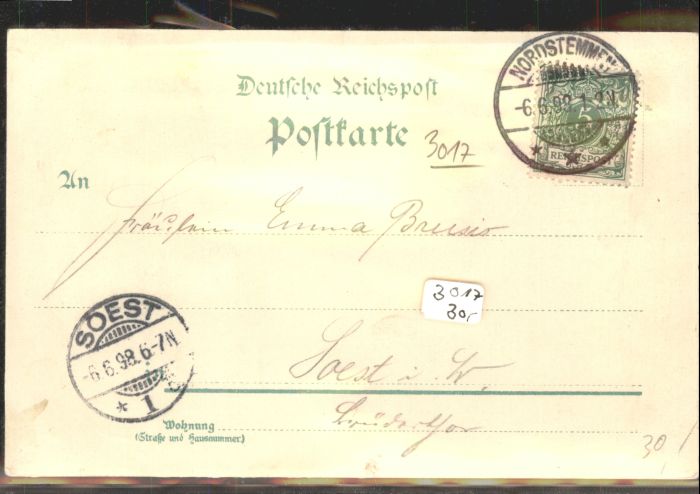 NORDSTEMMEN
-6.6.98.1-2N
5
REICHSPOST
Deutsche Reichspost
Postkarte
3017
An
Fräulein Emma
3017
30,-
SOEST
-6.6.98.6-7N
* 1
Soest i. W.
Brüderthor
Wohnung
(Straße und Hausnummer)
30